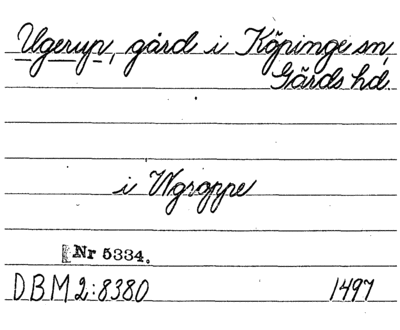 Ugerup, gård i Köpinge sn,
Gärds hd.
i Wgroppe
Nr 5334.
DBM 2:8380 1497